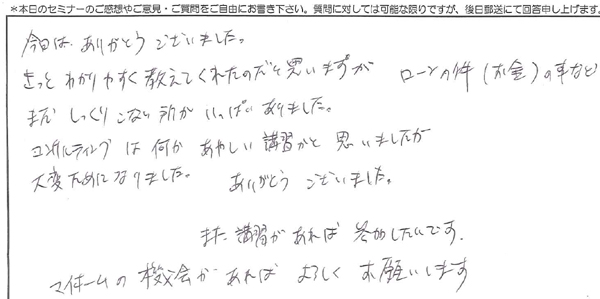 *本日のセミナーのご感想やご意見・ご質問をご自由にお書き下さい。質問に対しては可能な限りですが、後日郵送にて回答申し上げます。
今日は、ありがとうございました。
きっと わかりやすく教えてくれたのだと思いますが ローンの件(お金)の事など
まだ しっくりこない所が いっぱい ありました。
コンサルティング は 何か あやしい 講習かと 思いましたが
大変ためになりました。 ありがとう ございました。
また 講習が あれば 参加したいです。
マイホームの 機会が あれば よろしく お願いします